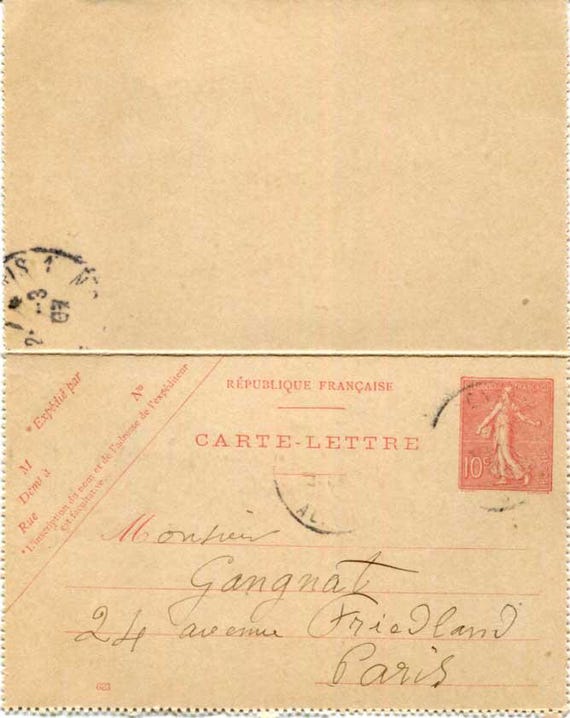 -3
07
RÉPUBLIQUE FRANÇAISE
CARTE-LETTRE
10c
* Expédié par
M
Demt à
Rue
No
* L'inscription du nom et de l'adresse de l'expéditeur
est facultative.
Monsieur
Gangnat
24 avenue Friedland
Paris
623